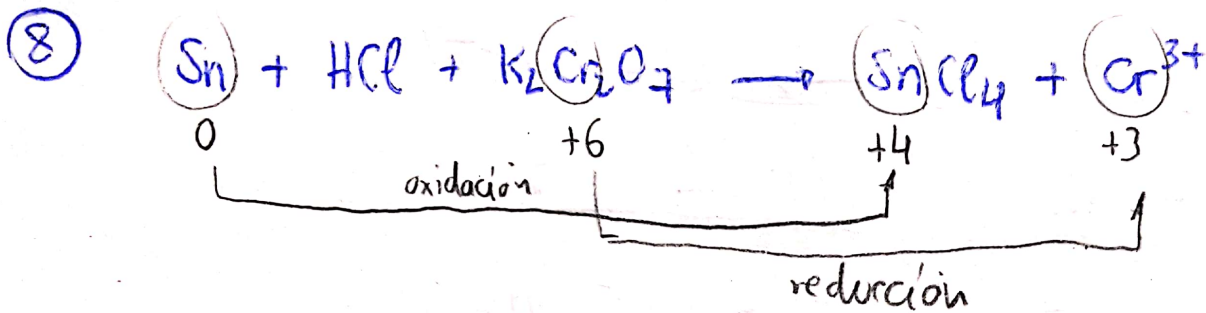 8 Sn + HCl + K₂Cr₂O₇ → SnCl₄ + Cr³⁺
0 +6 +4 +3
oxidación
reducción